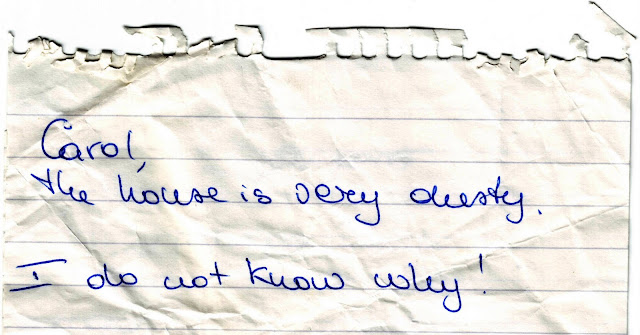 Carol,
the house is very dusty.
I do not know why!